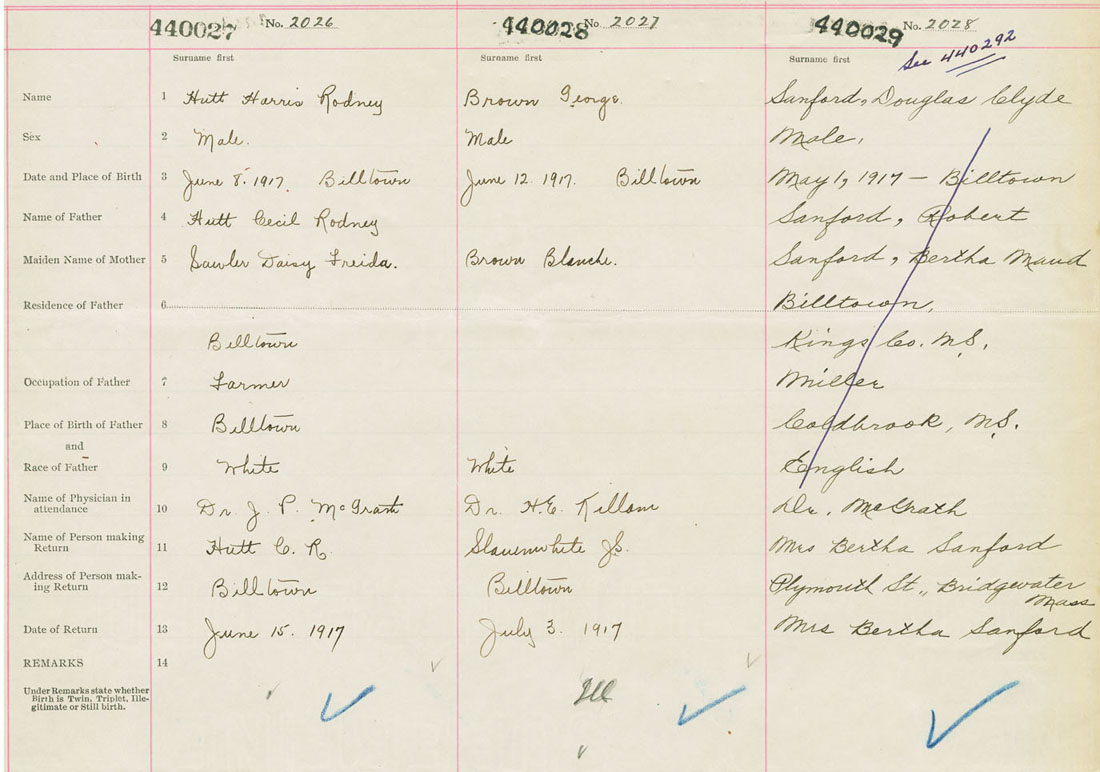 440027 No. 2026 440028 No. 2027 440029 No. 2028
See 440292
Surname first Surname first Surname first
Name 1 Hutt Harris Rodney Brown George. Sanford, Douglas Clyde
Sex 2 Male. Male Male,
Date and Place of Birth 3 June 8. 1917. Billtown June 12. 1917. Billtown May 1, 1917 – Billtown
Name of Father 4 Hutt Cecil Rodney Sanford, Robert
Maiden Name of Mother 5 Sawler Daisy Freida. Brown Blanche. Sanford, Bertha Maud
Residence of Father 6 Billtown,
Billtown Kings Co. N.S.
Occupation of Father 7 Farmer Miller
Place of Birth of Father 8 Billtown Coldbrook, N.S.
and
Race of Father 9 White White English
Name of Physician in
attendance 10 Dr. J. P. McGrath Dr. H.E. Killam Dr. McGrath
Name of Person making
Return 11 Hutt C. R. Slauenwhite J.S. Mrs Bertha Sanford
Address of Person mak-
ing Return 12 Billtown Billtown Plymouth St., Bridgewater
Mass
Date of Return 13 June 15. 1917 July 3. 1917 Mrs Bertha Sanford
REMARKS 14
Under Remarks state whether
Birth is Twin, Triplet, Ille-
gitimate or Still birth.
Ill